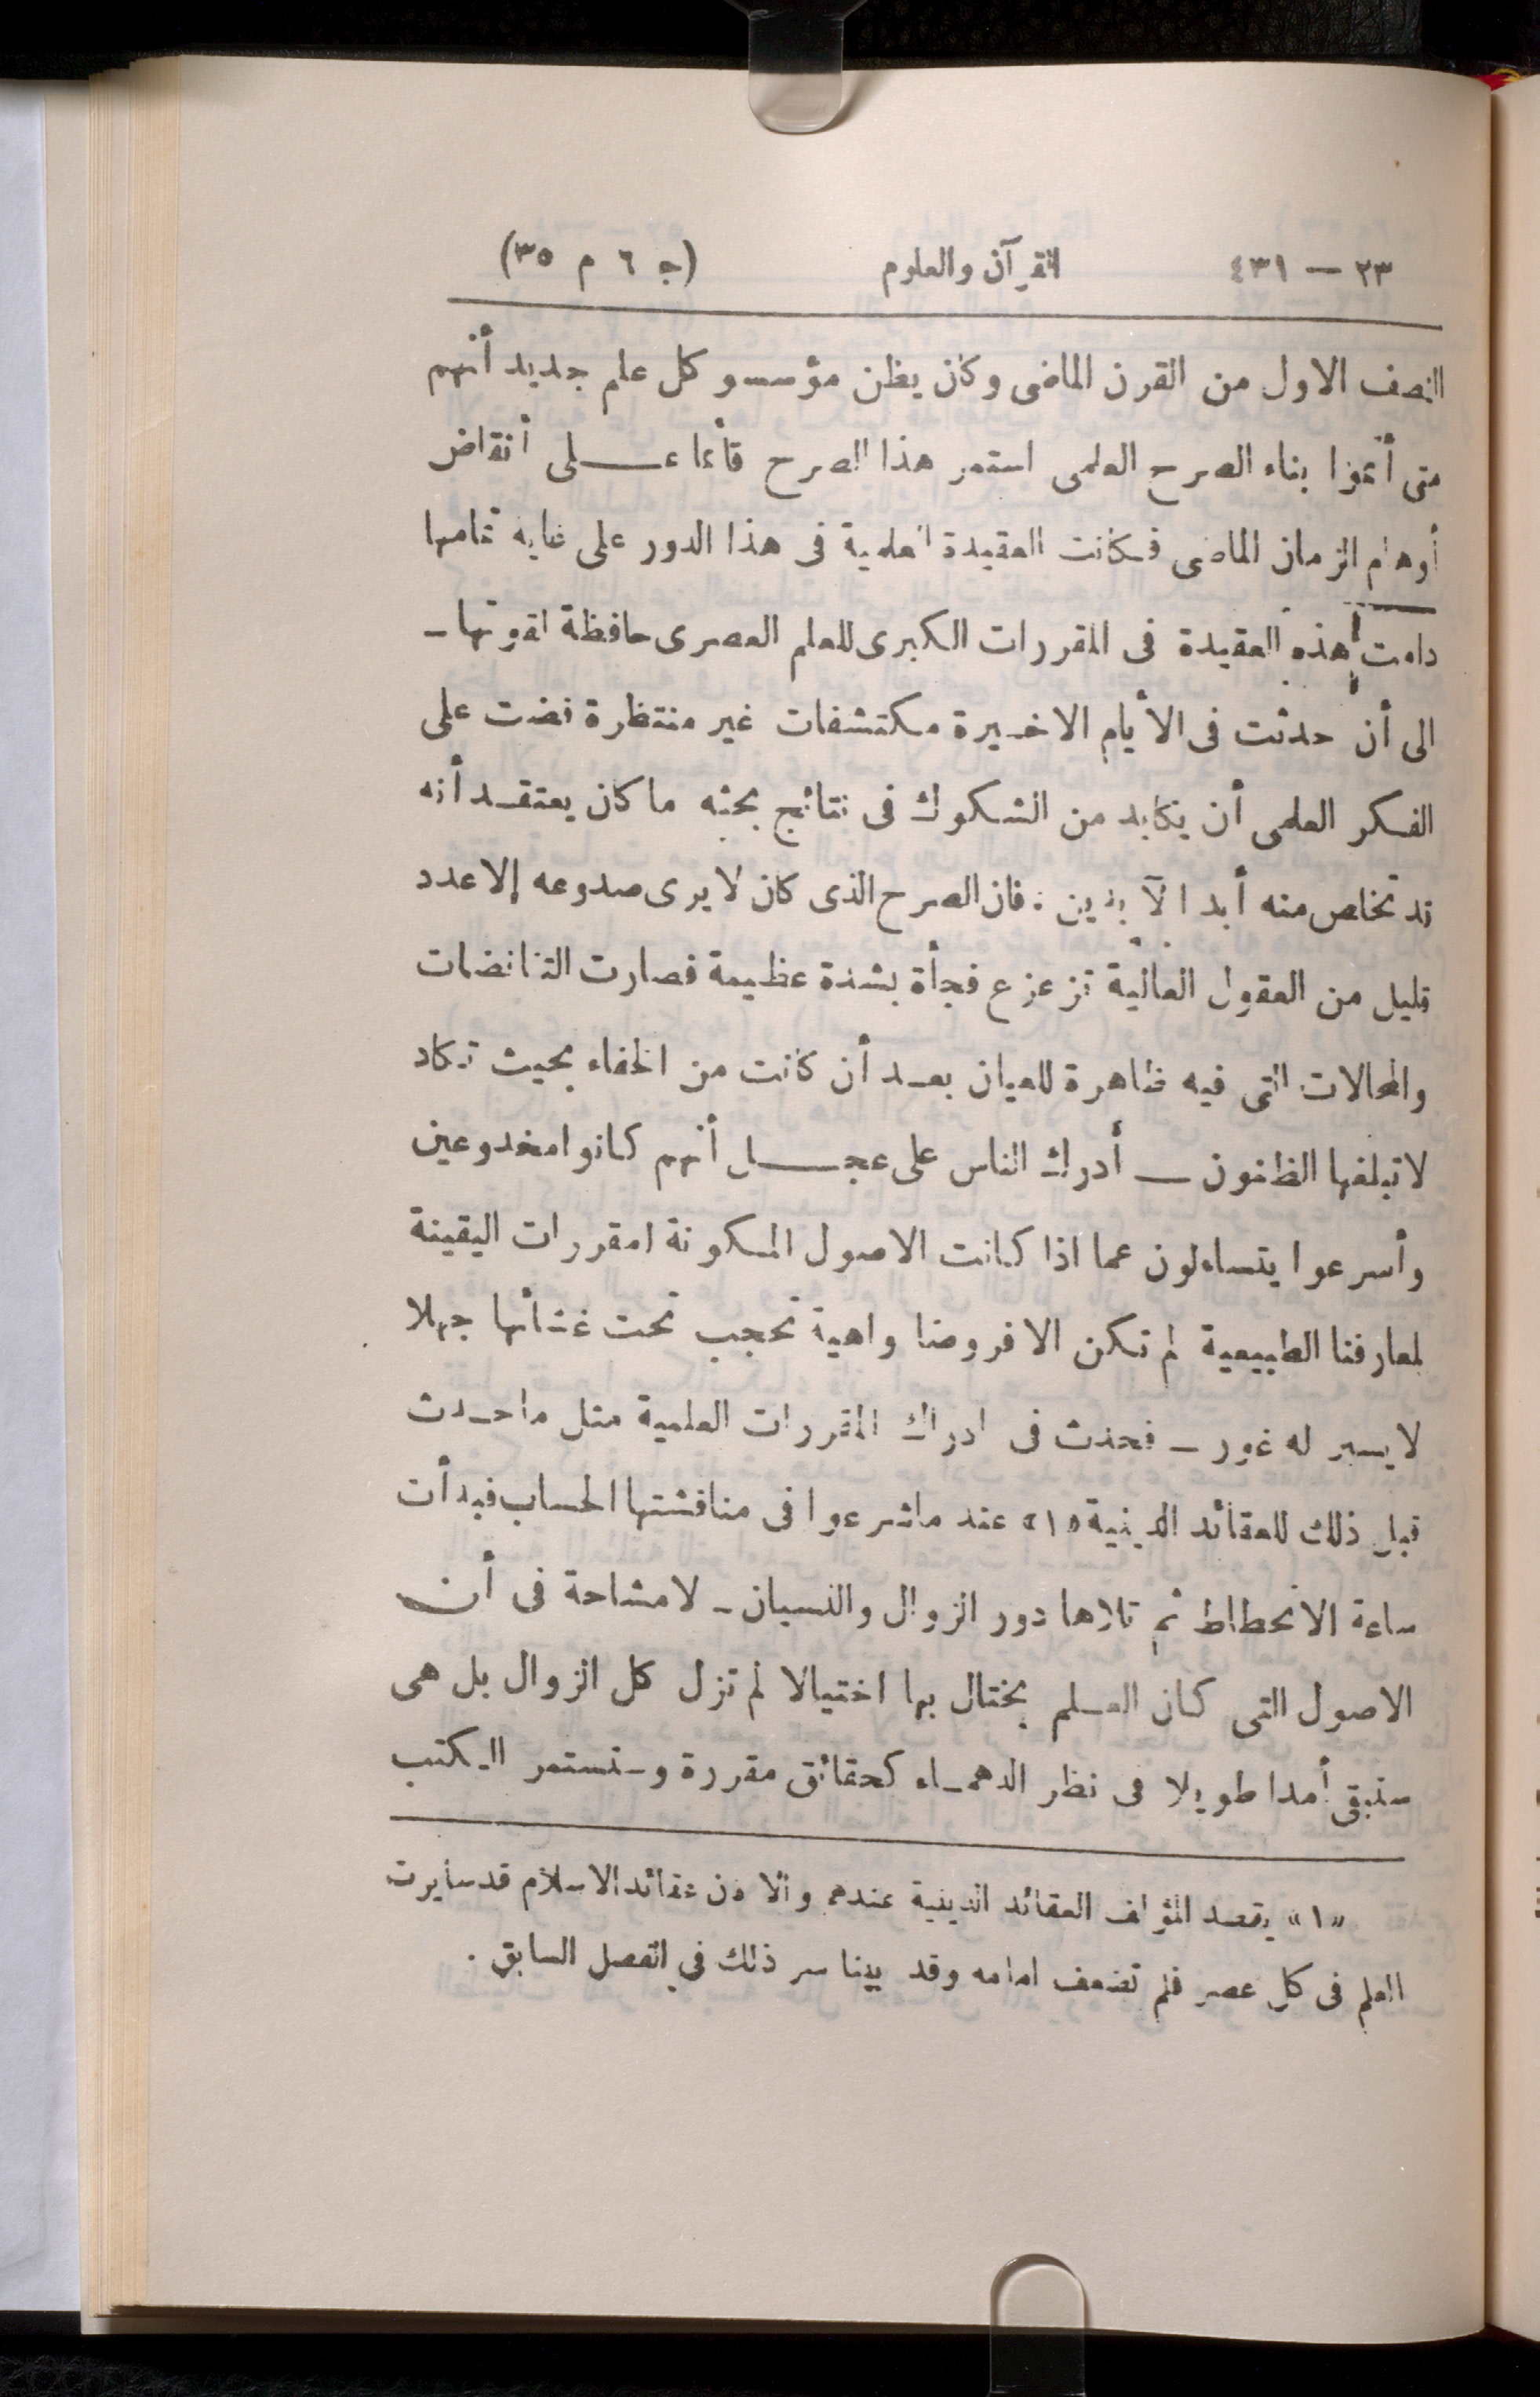 ٢٣ — ٤٣١ القرآن والعلوم (ج ٦ م ٣٥)
النصف الاول من القرن الماضى وكان يظن مؤسسو كل علم جديد أنهم
متى أتموا بناء الصرح العلمى استمر هذا الصرح قائما عـــلى أنقاض
أوهام الزمان الماضى فكانت العقيدة العلمية فى هذا الدور على غاية تمامها
دامت هذه العقيدة فى المقررات الكبرى للعلم العصرى حافظة لقوتها ـ
الى أن حدثت فى الأيام الاخيرة مكتشفات غير منتظرة قضت على
الفكر العلمى أن يكابد من الشكوك فى نتائج بحثه ما كان يعتقد أنه
قد تخلص منه أبد الآبدين : فان الصرح الذى كان لا يرى صدوعه إلا عدد
قليل من العقول العالية تزعزع فجأة بشدة عظيمة فصارت التناقضات
والمحالات التى فيه ظاهرة للعيان بعد أن كانت من الخفاء بحيث تكاد
لا تبلغها الظنون — أدرك الناس على عجـــل أنهم كانوا مخدوعين
وأسرعوا يتساءلون عما اذا كانت الاصول المكونة لمقررات اليقينة
لمعارفنا الطبيعية لم تكن الا فروضا واهية تحجب تحت غشائها جهلا
لا يسبر له غور ـ فحدث فى ادراك المقررات العلمية مثل ما حدث
قبل ذلك للعقائد الدينية «١» عند ما شرعوا فى مناقشتها الحساب فبدأت
ساعة الانحطاط ثم تلاها دور الزوال والنسيان ـ لا مشاحة فى أن
الاصول التى كان العلم يختال بها اختيالا لم تزل كل الزوال بل هى
ستبقى أمدا طويلا فى نظر الدهماء كحقائق مقررة وستستمر الكتب
«١» يقصد المؤلف العقائد الدينية عندهم والا فان عقائد الاسلام قد سايرت
العلم فى كل عصر فلم تضعف امامه وقد بينا سر ذلك في الفصل السابق .